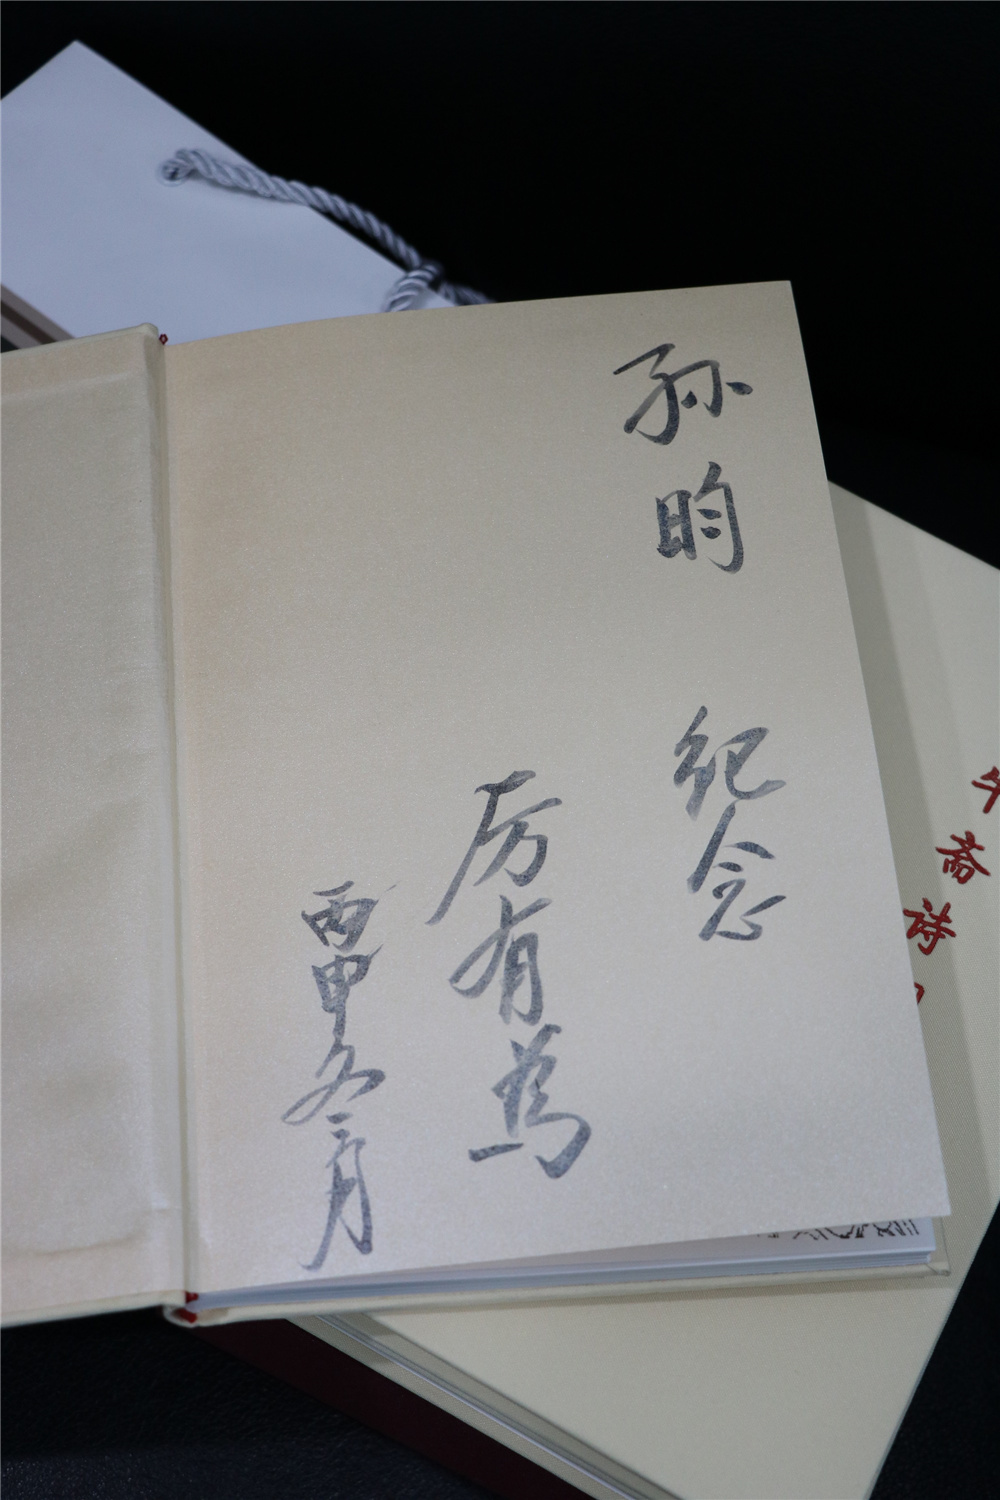 孙昀 纪念
厉有为
丙申冬二月
斋诗